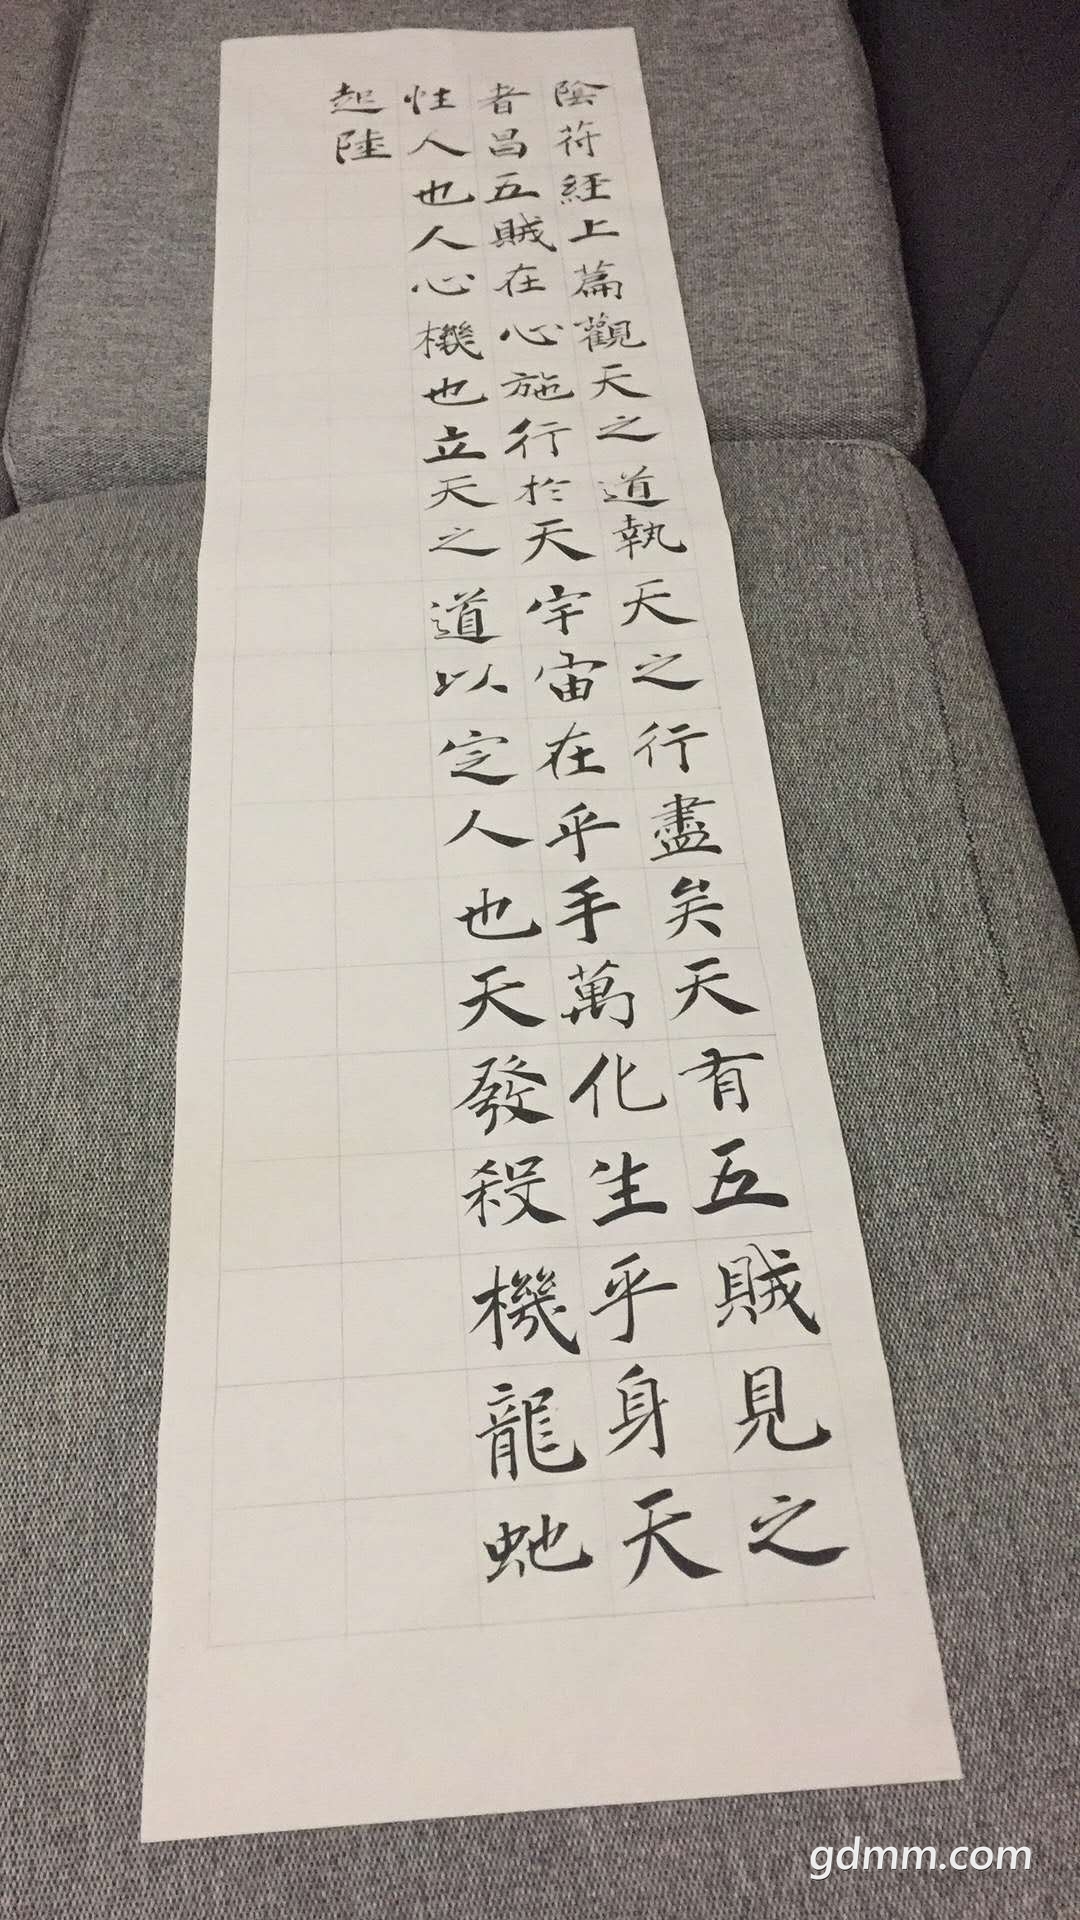 陰符經上篇觀天之道執天之行盡矣天有五賊見之
者昌五賊在心施行於天宇宙在乎手萬化生乎身天
性人也人心機也立天之道以定人也天發殺機龍虵
起陸
gdmm.com